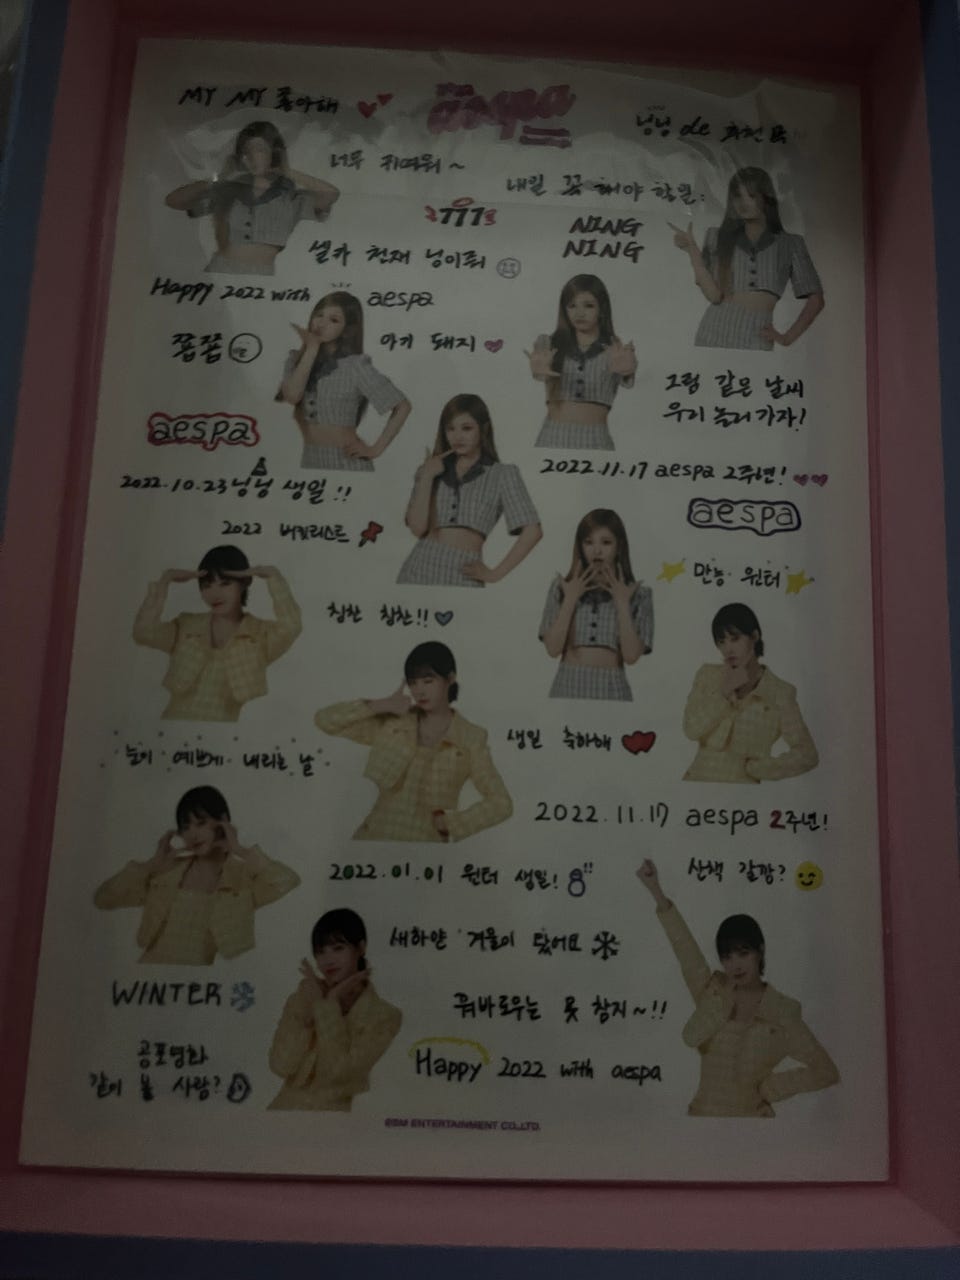 MY MY 좋아해
aespa
닝닝 de 추천곡
너무 귀여워~
내일 꼭 해야 할일:
777
NING
NING
셀카 천재 닝이퓌
Happy 2022 with aespa
쫍쫍
아기 돼지
그럼 같은 날씨
우리 놀러가자!
aespa
2022.11.17 aespa 2주년!
2022.10.23 닝닝 생일!!
aespa
2022 버킷리스트
만능 윈터
칭찬 칭찬!!
생일 축하해
눈이 예쁘게 내리는 날
2022.11.17 aespa 2주년!
2022.01.01 윈터 생일!
산책 갈깡?
새하얀 겨울이 왔어요
WINTER
꿔바로우는 못 참지~!!
공포영화
같이 볼 사람?
Happy 2022 with aespa
©SM ENTERTAINMENT CO.,LTD.